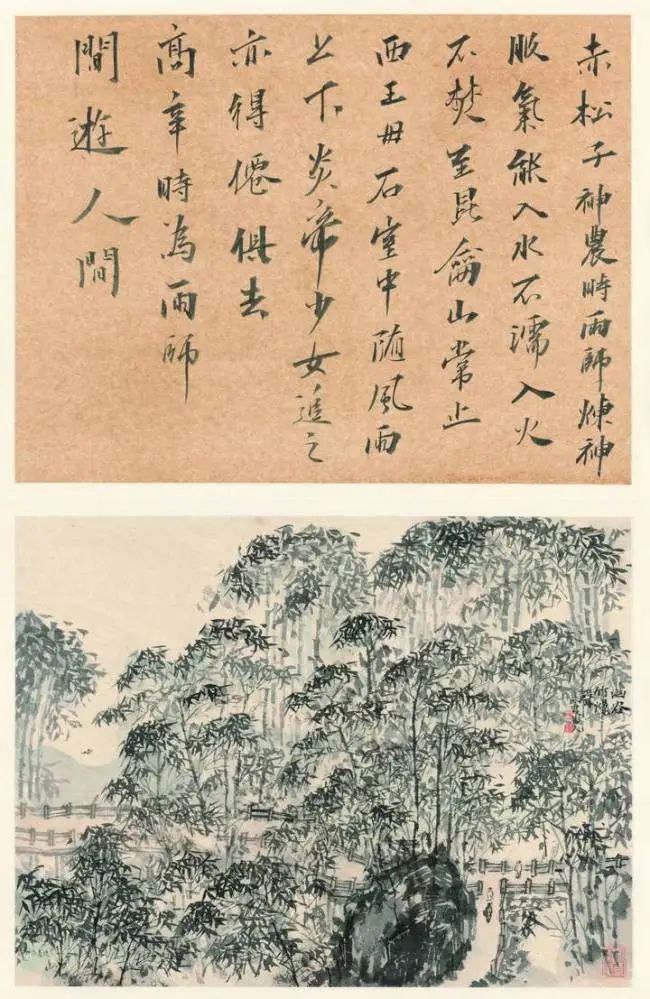 赤松子神農時雨師煉神
服氣能入水不濡入火
不焚至昆侖山常止
西王母石室中随風雨
上下炎帝少女追之
亦得僊俱去
高辛時為雨師
間遊人間
幽谷